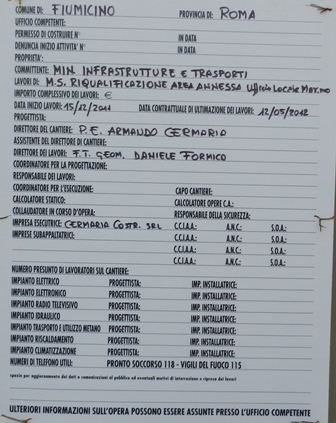 COMUNE DI: FIUMICINO PROVINCIA DI: ROMA
UFFICIO COMPETENTE:
PERMESSO DI COSTRUIRE N° IN DATA
DENUNCIA INIZIO ATTIVITA' N° IN DATA
PROPRIETA':
COMMITTENTE: MIN. INFRASTRUTTURE E TRASPORTI
LAVORI DI: M.S. RIQUALIFICAZIONE AREA ANNESSA Ufficio Locale Mar.mo
IMPORTO COMPLESSIVO DEI LAVORI: €
DATA INIZIO LAVORI: 15/12/2011 DATA CONTRATTUALE DI ULTIMAZIONE DEI LAVORI: 12/05/2012
PROGETTISTA:
DIRETTORE DEL CANTIERE: P.E. ARMAUDO CERMARIA
ASSISTENTE DEL DIRETTORE DI CANTIERE:
DIRETTORE DEI LAVORI: F.T. GEOM. DANIELE FORMICO
COORDINATORE PER LA PROGETTAZIONE:
RESPONSABILE DEI LAVORI:
COORDINATORE PER L'ESECUZIONE: CAPO CANTIERE:
CALCOLATORE STATICO: CALCOLATORE OPERE C.A.:
COLLAUDATORE IN CORSO D'OPERA: RESPONSABILE DELLA SICUREZZA:
IMPRESA ESECUTRICE: CERMARIA COSTR. SRL C.C.I.A.A.: A.N.C.: S.O.A.:
IMPRESE SUBAPPALTATRICI: C.C.I.A.A.: A.N.C.: S.O.A.:
C.C.I.A.A.: A.N.C.: S.O.A.:
C.C.I.A.A.: A.N.C.: S.O.A.:
NUMERO PRESUNTO DI LAVORATORI SUL CANTIERE:
IMPIANTO ELETTRICO PROGETTISTA: IMP. INSTALLATRICE:
IMPIANTO ELETTRONICO PROGETTISTA: IMP. INSTALLATRICE:
IMPIANTO RADIO TELEVISIVO PROGETTISTA: IMP. INSTALLATRICE:
IMPIANTO IDRAULICO PROGETTISTA: IMP. INSTALLATRICE:
IMPIANTO TRASPORTO E UTILIZZO METANO PROGETTISTA: IMP. INSTALLATRICE:
IMPIANTO RISCALDAMENTO PROGETTISTA: IMP. INSTALLATRICE:
IMPIANTO CLIMATIZZAZIONE PROGETTISTA: IMP. INSTALLATRICE:
NUMERI DI TELEFONO UTILI: PRONTO SOCCORSO 118 - VIGILI DEL FUOCO 115
spazio per aggiornamento dei dati o comunicazioni al pubblico ed eventuali motivi di interruzione e ripresa dei lavori
ULTERIORI INFORMAZIONI SULL'OPERA POSSONO ESSERE ASSUNTE PRESSO L'UFFICIO COMPETENTE